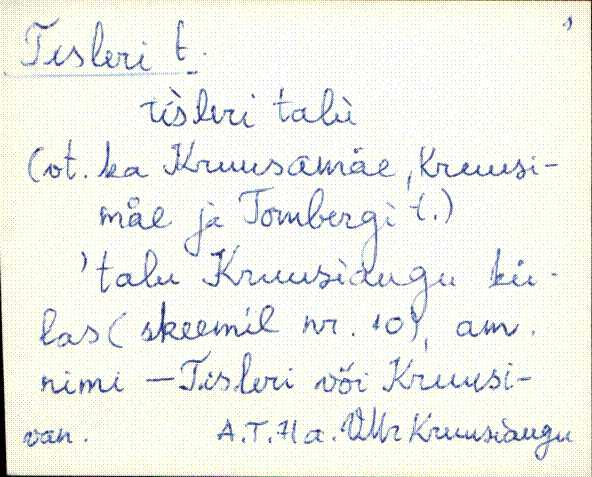 1
Tisleri t.
tìsleri talù
(vt. ka Kruusamäe, Kruusi-
mäe ja Tombergi t.)
'talu Kruusiaugu kü-
las (skeemil nr. 10), am.
nimi — Tisleri või Kruusi-
van. A.T. Ha. Kruusiaugu